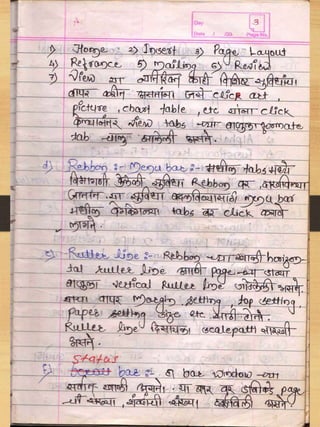 Day
3
Date / /20 Page No.
1) Home 2) Insert 3) Page Layout
4) Refrance 5) mailing 6) Review
7) View या व्यतिरिक्त काही विशिष्ट सुविधांचा
वापर करीत असतांना जसे click art,
picture, chart table, etc यांना click
केल्यानंतर view tabs च्या बाजुला formate
tab चालू झालेली असते.
d) Rebbon :- Menu bar :- मधील tabs मध्ये
विभागणी केलेली सुविधा Rebbon वर दर्शविल्या
जातात. या सुविधा बदलविण्यासाठी menu bar
मधील वेगवेगळ्या tabs वर click करावे
लागते.
e) Ruller line :- Rebbon च्या खाली horizon-
tal ruller line आणि page च्या डाव्या
बाजुला vertical Ruller line जोडलेली असते.
वापर Margin setting, top setting,
paper setting size etc साठी होतो.
Ruller line दिसायला scalepatti सारखी
असते.
Status
F) bar :- हा bar window च्या
सर्वात खाली असतो. या बार वर डावीकडे page
ची संख्या, शब्दांची संख्या दर्शविली असते